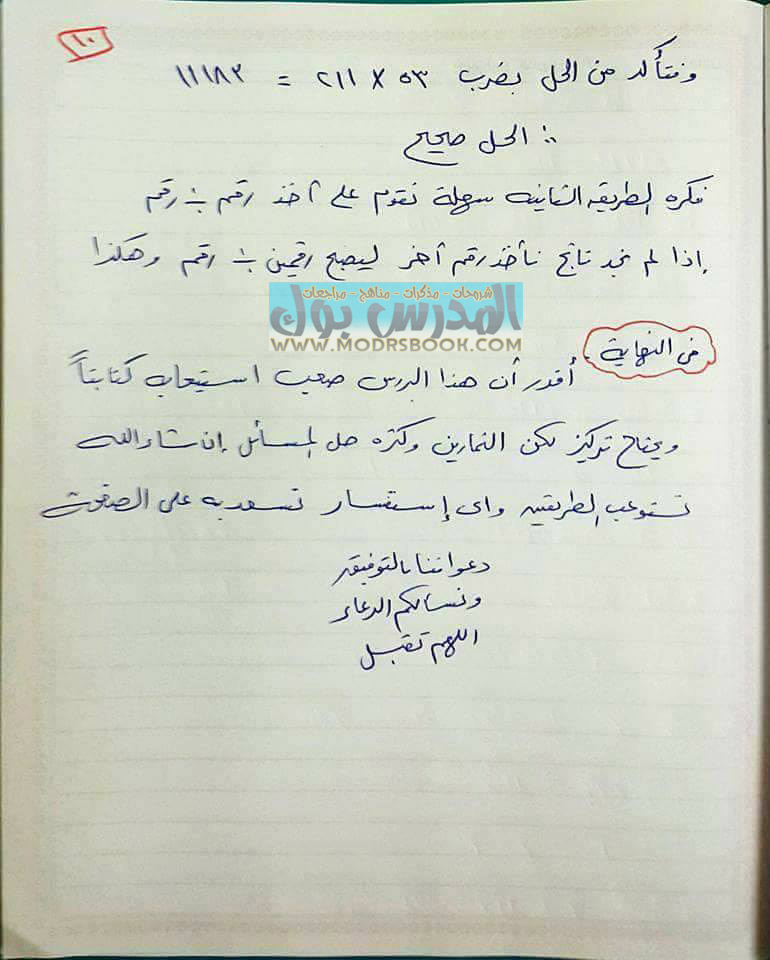 ١٠
ونتأكد من الحل بضرب ٥٣ × ٢١١ = ١١١٨٣
∴ الحل صحيح
فكره الطريقه الثانيه سهلة نقوم على أخذ رقم ÷ رقم
إذا لم نجد ناتج نأخذ رقم أخر ليصبح رقمين ÷ رقم وهكذا
شروحات - مذكرات - مناهج - مراجعات
المدرس بوك
WWW.MODRSBOOK.COM
فى النهاية
أقدر أن هذا الدرس صعب استيعابه كتابتاً
ويحتاج تركيز لكن التمارين وكثره حل المسائل إن شاء الله
تستوعب الطريقتين واى إستفسار نسعد به على الصفحة
دعواتنا بالتوفيق
ونسالكم الدعاء
اللهم تقبل